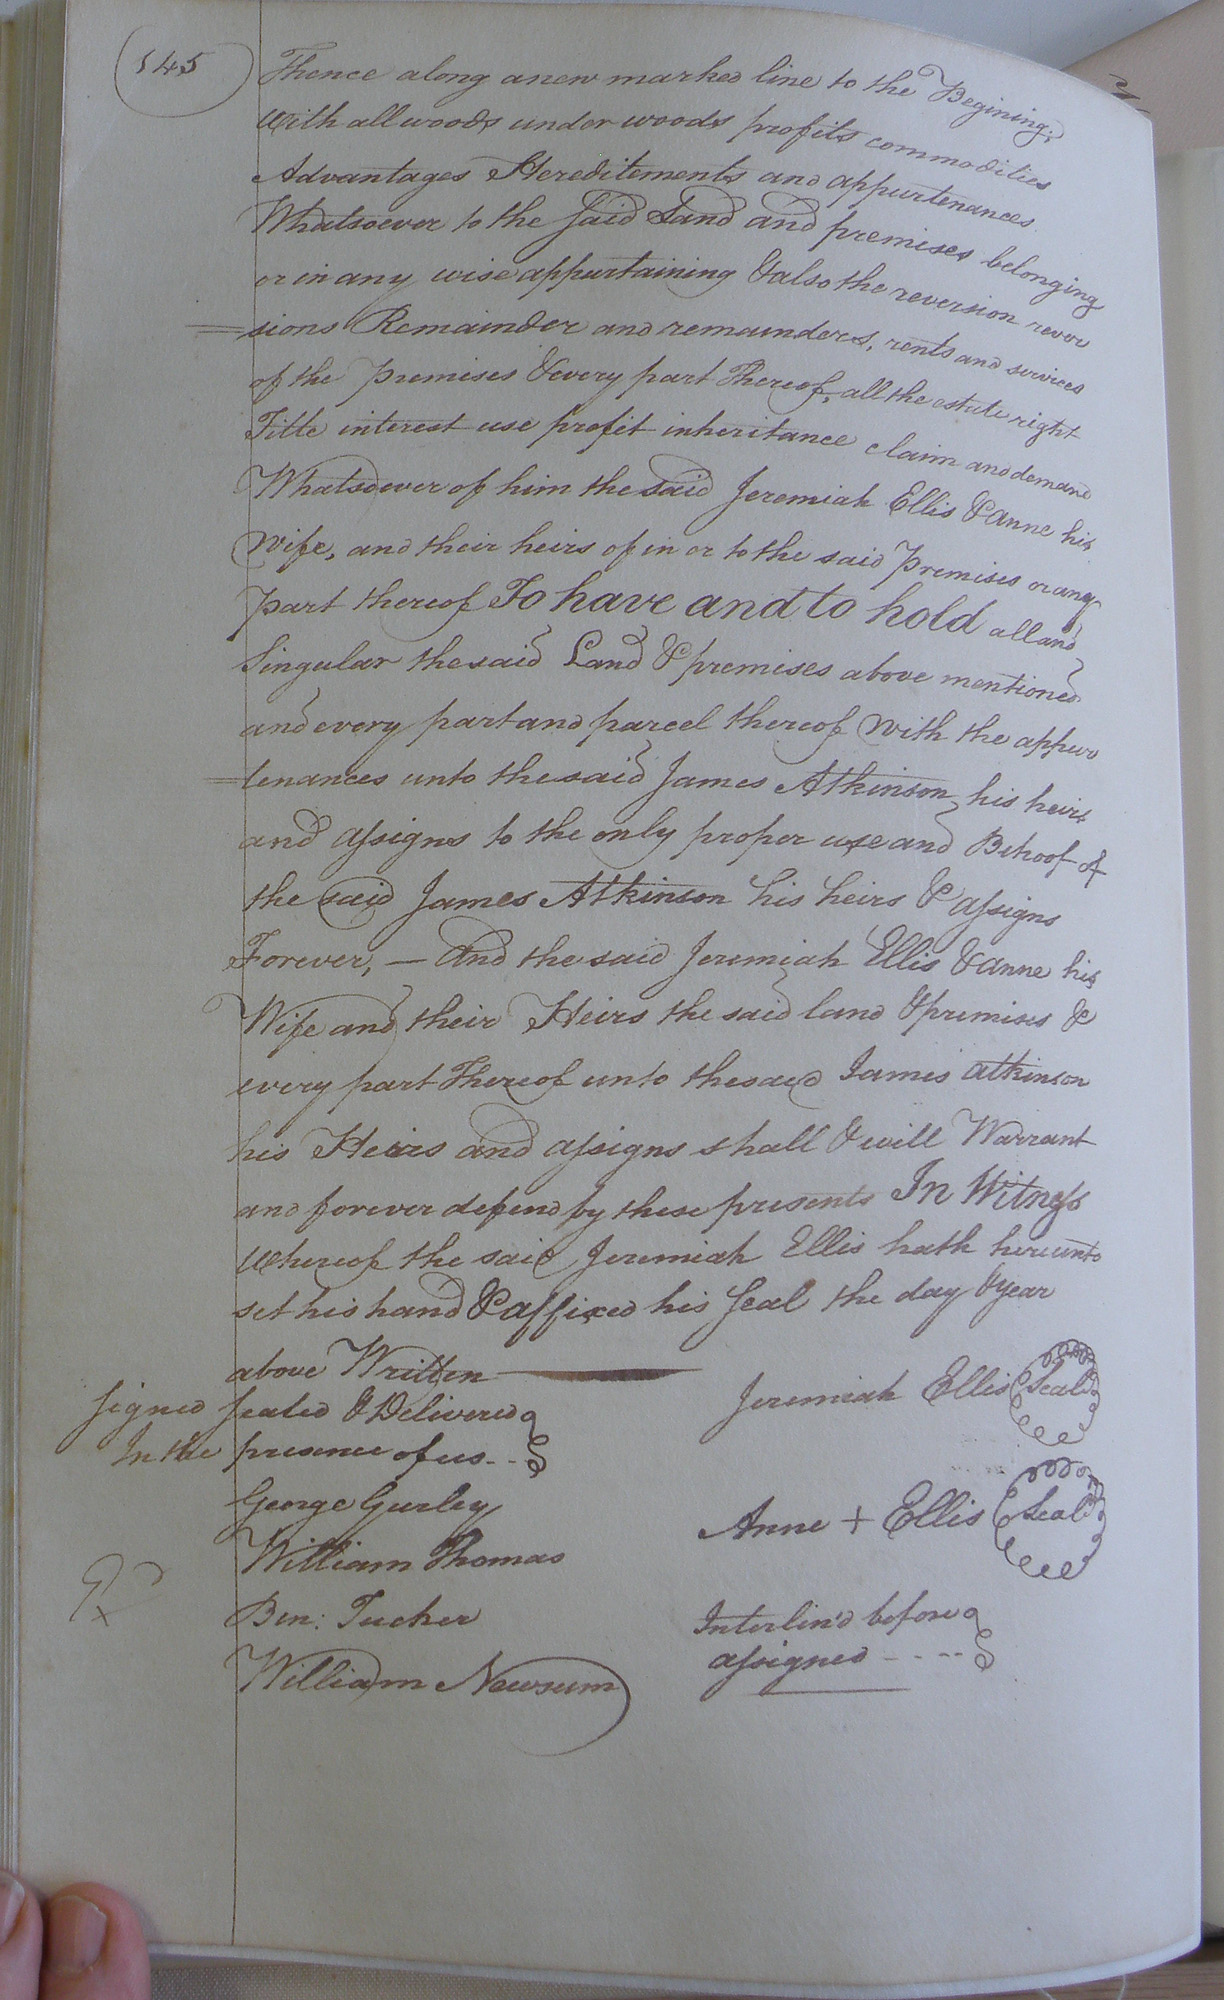 545
Thence along a new marked line to the Begining;
With all woods under woods profits commodities
Advantages Hereditements and appurtenances
Whatsoever to the said Land and premises belonging
or in any wise appurtaining & also the reversion rever
=sions Remainder and remainders, rents and services
of the Premises & every part Thereof, all the estate right
Title interest use profit inheritance claim and demand
Whatsoever of him the said Jeremiah Ellis & anne his
Wife, and their heirs of in or to the said Premises or any
Part thereof To have and to hold all and
Singular the said Land & premises above mentioned
and every part and parcel thereof With the appur
=tenances unto the said James Atkinson his heirs
and assigns to the only proper use and Behoof of
the said James Atkinson his heirs & assigns
Forever, — And the said Jeremiah Ellis & anne his
Wife and their Heirs the said land & premises &
every part Thereof unto the said James atkinson
his Heirs and assigns shall & will Warrant
and forever defend by these presents In Witness
Whereof the said Jeremiah Ellis hath hereunto
set his hand & affixed his Seal the day & year
above Written
Signed Sealed & Delivered
In the presence of us
Jeremiah Ellis Seal
George Gurley
Anne + Ellis Seal
William Thomas
Ben: Tucker
Interlin'd before
assigned
William Newsum